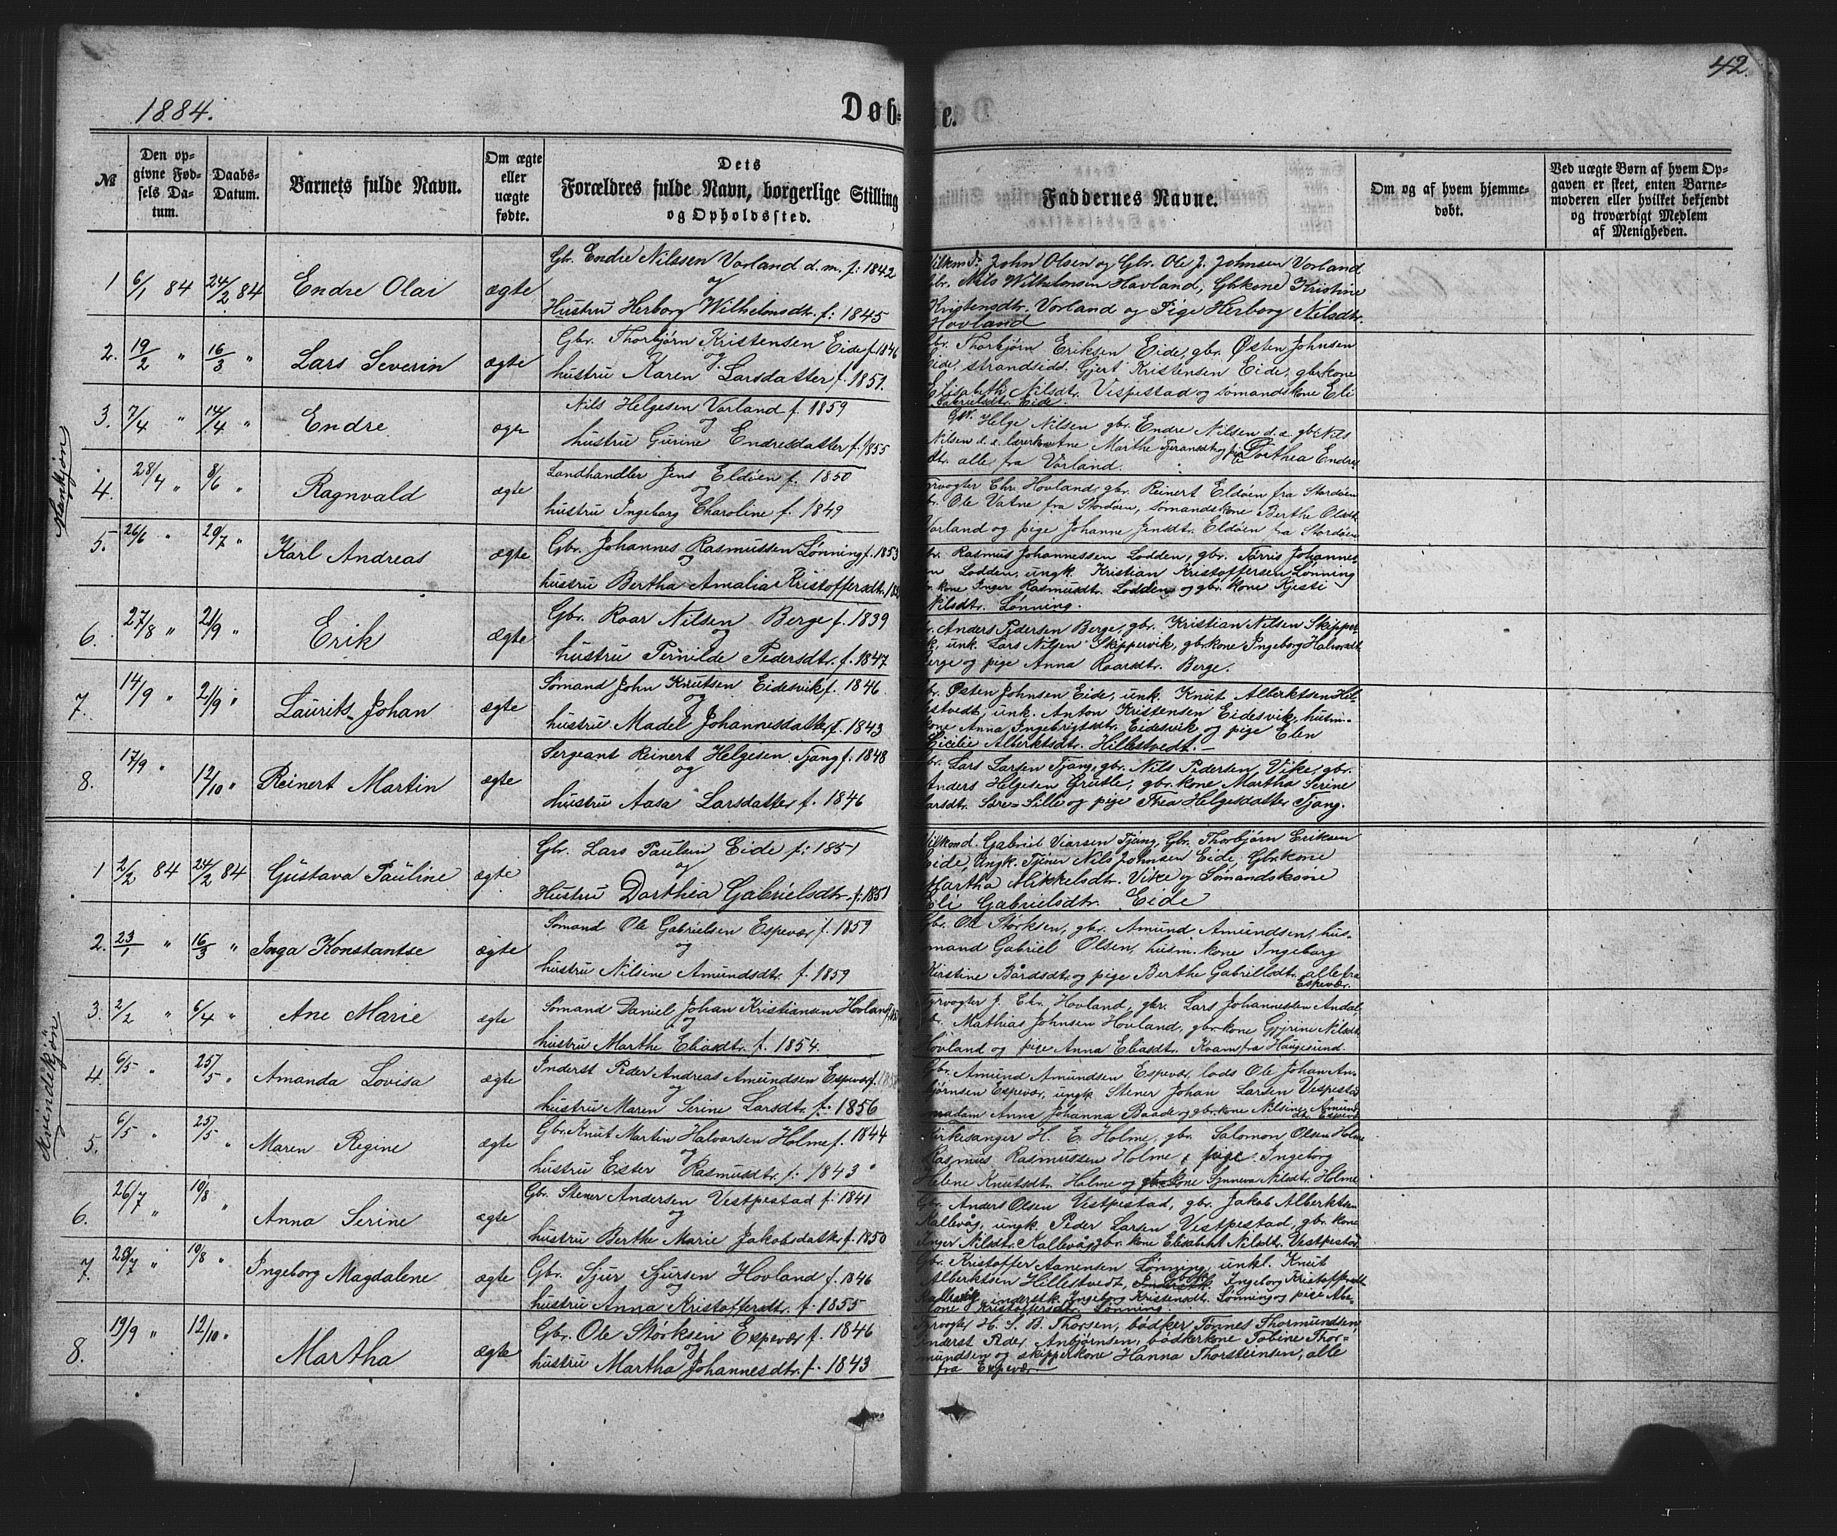 42.
1884.
Døb= te.
№
Den op-
givne Fød-
sels Da-
tum.
Daabs-
Datum.
Barnets fulde Navn.
Om ægte
eller
uægte
fødte.
Dets
Forældres fulde Navn, borgerlige Stilling
og Opholdssted.
Faddernes Navne.
Om og af hvem hjemme-
døbt.
Ved uægte Børn af hvem Op-
gaven er skeet, enten Barne-
moderen eller hvilket bekjendt
og troværdigt Medlem
af Menigheden.
Mankjøn
1 6/1 84 24/2 84 Endre Olai ægte
Gbr. Endre Nilssen Vorland d.m. f: 1842
og
Hustru Herborg Wilhelmsdt. f: 1845
John Olsen og Gbr. Ole J. Johnsen Vorland
Nils Wilhelmsen Hovland, Gbkone Kristine
Kristensdtr. Vorland og Pige Herborg Nilsdtr.
Hovland
2. 19/2 " 16/3 " Lars Severin ægte
Gbr. Thorbjørn Kristensen Eide f. 1846
og
hustru Karen Larsdatter f. 1851.
Thorbjørn Eriksen Eide, gbr. Østen Johnsen
Eide, strandsidd. Gjert Kristensen Eide, gbrkone
Elisabeth Nilsdtr. Vespestad og sømandskone Eli
Gabrielsdtr. Eide.
3. 7/4 " 14/4 " Endre ægte
Nils Helgesen Vorland f. 1859
og
hustru Gurine Endresdatter f. 1855
Gbr. Helge Nilsen gbr. Endre Nilsen d.æ. gbr. Nils
Nilsen d.æ. Ane Marthe Dorthea Endres
dtr. alle fra Vorland.
4. 28/4 " 8/6 " Ragnvald ægte
Landhandler Jens Eldøen f. 1850
og
hustru Ingeborg Charoline f. 1849
Fyrvogter Chr. Hovland, gbr. Reinert Eldøen fra Stordøen
Ole Vatne fra Stordøen, sømandskone Berthe Olsdtr.
Vorland og pige Johanne Jensdt. Eldøen fra Stordøen
5. 26/6 " 20/7 " Karl Andreas ægte
Gbr. Johannes Rasmussen Lønning f. 1853
og
hustru Bertha Amalia Kristoffersdt.
Rasmus Johannessen Lodden, gbr. Tørris Johannes-
sen Lodden, ungk. Kristian Kristoffersen Lønning
kone Inger Rasmusdtr. Lodden og gbr. kone Kjesti
Nilsdtr. Lønning.
6. 27/8 " 21/9 " Erik ægte
Gbr. Roar Nilsen Berge f. 1839
og
hustru Pernilde Pedersdtr. f. 1847
Anders Pedersen Berge, gbr. Kristian Nilsen Skipper-
vik, unk. Lars Nilsen Skippervik, gbrkone Ingeborg Halvorsdt.
Berge og pige Anna Roarsdtr. Berge.
7. 14/9 " 21/9 " Laurits Johan ægte
Sømand John Knutsen Eidesvik f. 1846
og
hustru Madel Johannesdatter f. 1843
Østen Johnsen Eide, unk. Knut Alberktsen Hil-
lestvedt, unk. Anton Kristensen Eidesvik, husm-
kone Anna Ingebrigtsdtr. Eidesvik og pige Elen
Cicilie Alberktsdtr. Hillestvedt.
8. 17/9 " 12/10 " Reinert Martin ægte
Sergeant Reinert Helgesen Tjong f. 1848
og
hustru Aasa Larsdatter f. 1846
Lars Larsen Tjong, gbr. Nils Pedersen Vike, gbr.
Anders Helgesen Grutle, gbrkone Martha Serine
Larsdtr. Søre=Sille og pige Thea Helgesdatter Tjong.
Kvindekjøn
1 2/2 84 24/2 84 Gustava Pauline ægte
Gbr. Lars Paulsen Eide f: 1851
og
Hustru Dorthea Gabrielsdtr. f. 1851
Gabriel Viarsen Tjong, Gbr. Thorbjørn Eriksen
Eide, Ungk. Tjener Nils Johnsen Eide, Gbrkone
Martha Mikkelsdtr. Vike og Sømandskone
Eli Gabrielsdtr. Eide
2. 23/1 " 16/3 " Inga Konstantse ægte
Sømand Ole Gabrielsen Espevær f. 1859
og
hustru Nilsine Amundsdtr. f. 1859
Gbr. Ole Størksen, gbr. Amund Amundsen, hus-
mand Gabriel Olsen, husm. kone Ingeborg
Kirstine Bårdsdt. og pige Berthe Gabrielsdt. alle fra
Espevær.
3. 2/2 " 6/4 " Ane Marie ægte
Sømand Daniel Johan Kristiansen Hovland
og
hustru Marthe Eliasdtr. f. 1854.
Fyrvogter J. Chr. Hovland, gbr. Lars Johannesen Andal
Mathias Johnsen Hovland, gbrkone Gyrine Nilsdt
Hovland og pige Anna Eliasdt. Kvam fra Haugesund.
4. 6/5 " 25/5 " Amanda Lovisa ægte
Inderst Peder Andreas Amundsen Espevær f.
og
hustru Maren Serine Larsdtr. f: 1856
Gbr. Amund Amundsen Espevær, lods Ole Johan An-
bjørnsen Espevær, ungk Stener Johan Larsen Vespestad
madam Anna Johanna Baade og gbrkone Nilsine Amunds
dt. Espevær
5. 6/5 " 25/5 " Maren Regine ægte
Gbr. Knut Martin Halvorsen Holme f. 1844
og
hustru Ester Rasmusdtr. f. 1843
Kirkesanger H. E. Holme, gbr. Salomon Olsen Holme
Rasmus Rasmussen Holme, pige Ingeborg
Helene Knutsdtr. Holme og gbrkone Synneva Nilsdt. Holme
6. 26/7 " 10/8 " Anna Serine ægte
Gbr. Stener Andersen Vestpestad f. 1841
og
hustru Berthe Marie Jakobsdatter f. 1850
Gbr. Anders Olsen Vestpestad, gbr. Jakob Alberktsen
Kallevåg, ungk. Peder Larsen Vestpestad, gbr. kone
Inger Nilsdt. Kallevåg, gbr. kone Elisabet Nilsdtr. Vestpestad
7. 20/7 " 10/8 " Ingeborg Magdalene ægte
Gbr. Sjur Sjursen Hovland f. 1846
og
hustru Anna Kristoffersdtr. f. 1855
Gbr. Kristoffer Aanensen Lønning, unkl. Knut
Alberktsen Hillestvedt, Ingeborg Kristoffersdt.
Kallevik, Ingeborg Kristensdt. Lønning og pige Abe-
lone Kristoffersdtr. Lønning.
8. 19/9 " 12/10 " Martha ægte
Gbr. Ole Størksen Espevær f. 1846
og
hustru Martha Johannesdtr. f. 1843
Fyrvogter H. S. B. Thorsen, bødker Tønnes Thormundsen
Inderst Peder Anbjørnsen, bødkerkone Tobine Thor-
mundsen og skipperkone Hanna Thorsteinsen, alle
fra Espevær